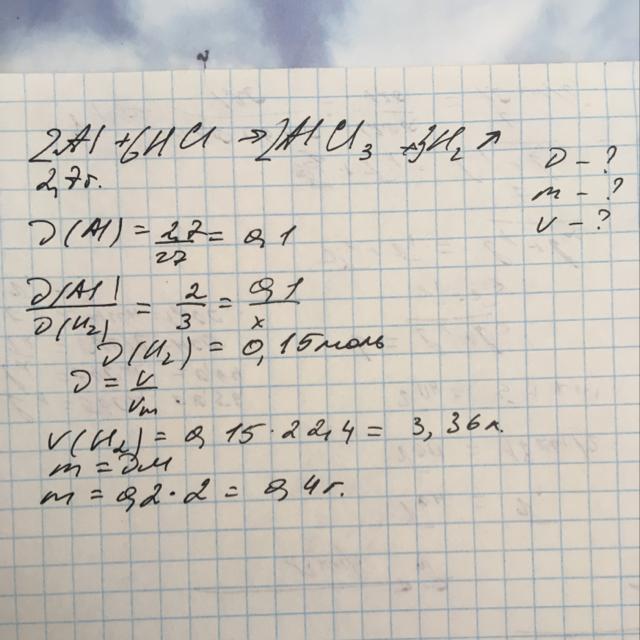 2Al + 6HCl → 2AlCl₃ + 3H₂ ↑
2,7г.
ν - ?
m - ?
V - ?
ν(Al) = 2,7/27 = 0,1
ν(Al)/ν(H₂) = 2/3 = 0,1/x
ν(H₂) = 0,15 моль
ν = V/Vm
V(H₂) = 0,15 · 22,4 = 3,36 л.
m = νM
m = 0,2 · 2 = 0,4 г.